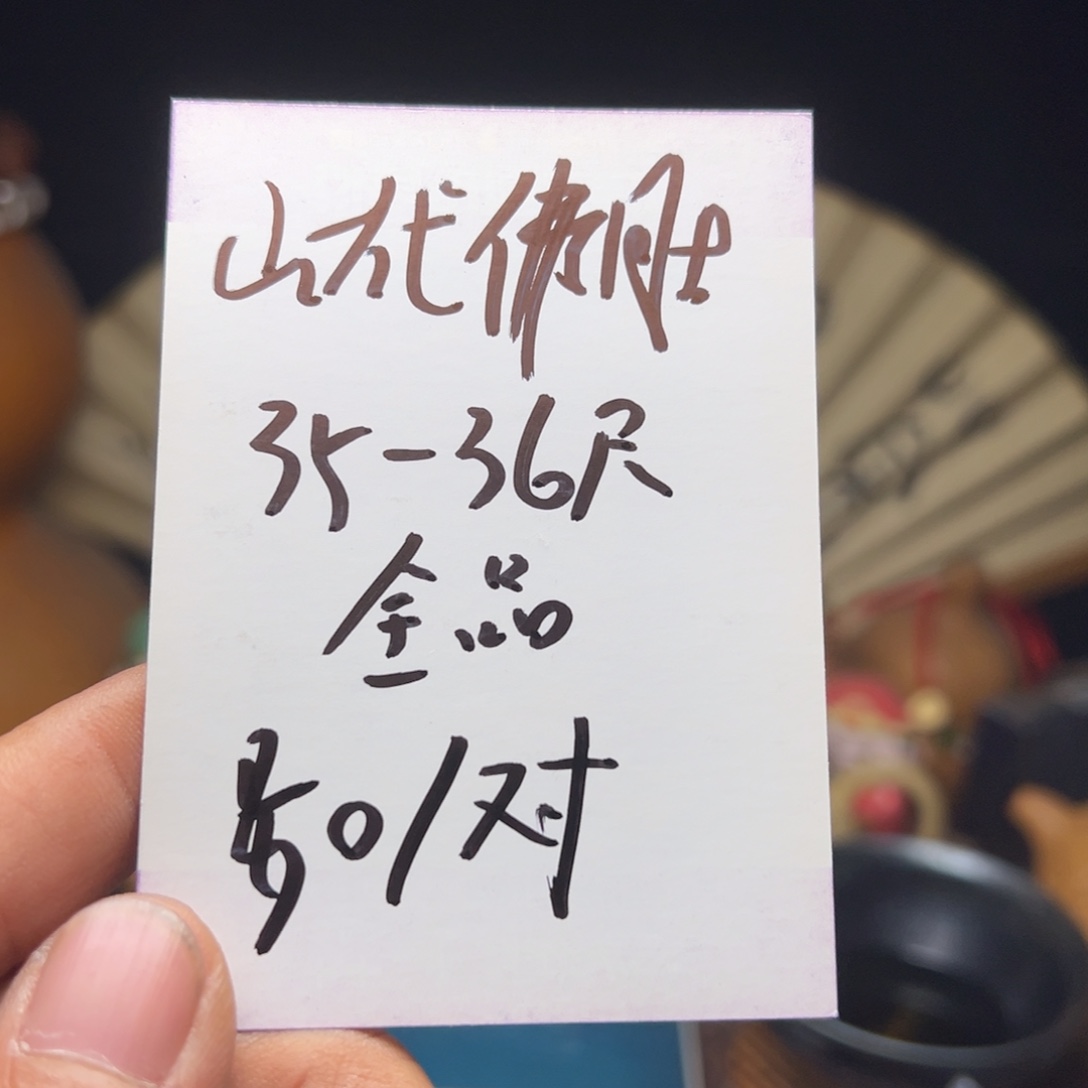 山佛肚
35-36尺
全品
50/对